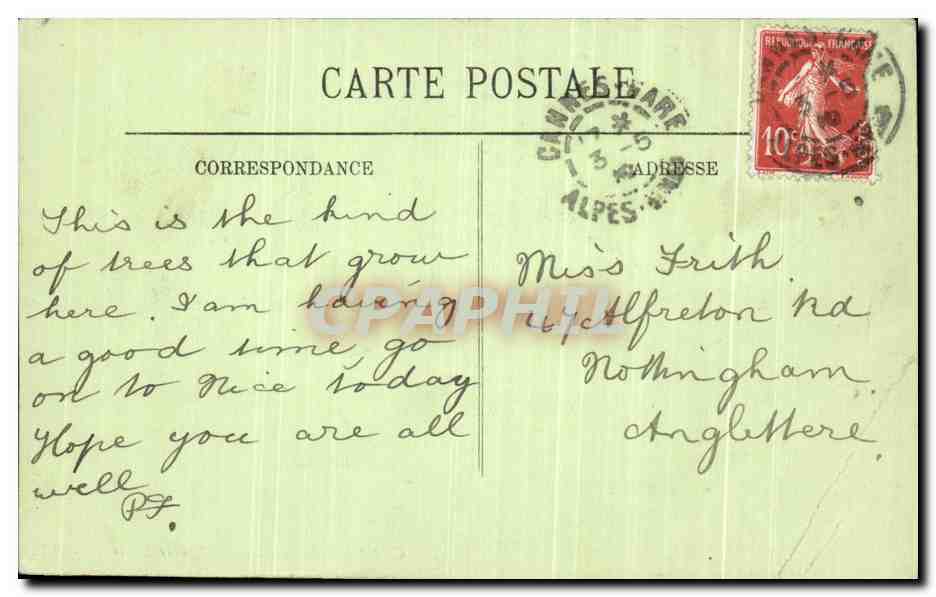 CARTE POSTALE
CORRESPONDANCE
ADRESSE
REPUBLIQUE FRANÇAISE
10c
CANNES-GARE
3 -5
ALPES-MMES
This is the kind
of trees that grow
here. I am having
a good time, go
on to Nice today
Hope you are all
well
PF.
Miss Frith
47 Alfreton Rd
Nottingham
Anglettere
CPAPHIL